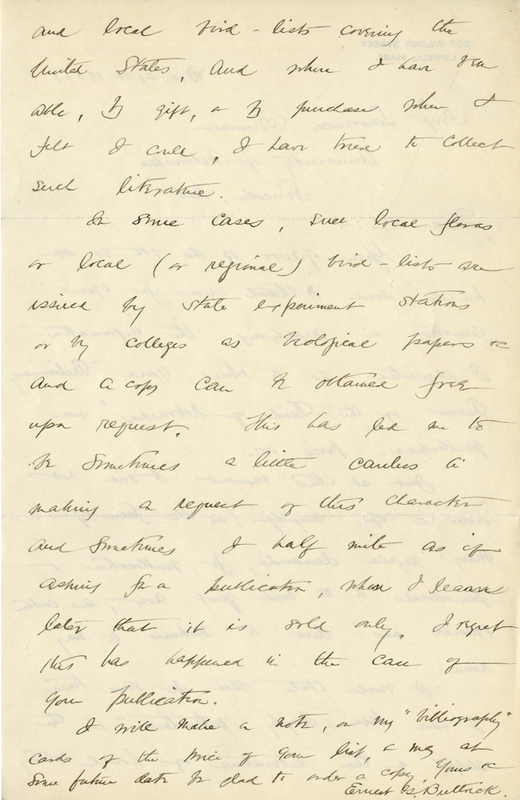 and local bird-lists covering the
United States, and when I have been
able, by gift, or by purchase when I
felt I could, I have tried to collect
such literature.
In some cases, such local floras
or local (or regional) bird-lists are
issued by State experiment stations
or by colleges as biological papers &c
and a copy can be obtained free
upon request. This has led me to
be sometimes a little careless in
making a request of this character
and sometimes I half write as if
asking for a publication, when I learn
later that it is sold only. I regret
this has happened in the case of
your publication.
I will make a note, on my "bibliography"
cards of the price of your list, & may at
some future date be glad to order a copy. Yours &c
Ernest G. Buttrick.